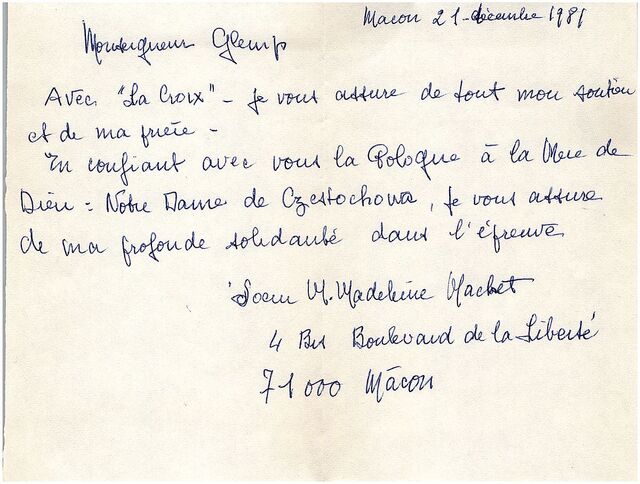 Macon 21 décembre 1981
Monseigneur Glemp
Avec "La Croix" - je vous assure de tout mon soutien
et de ma prière -
En confiant avec vous la Pologne à la Mère de
Dieu : Notre Dame de Czestochowa, je vous assure
de ma profonde solidarité dans l'épreuve
Soeur M. Madeleine Machet
4 Bis Boulevard de la Liberté
71000 Mâcon